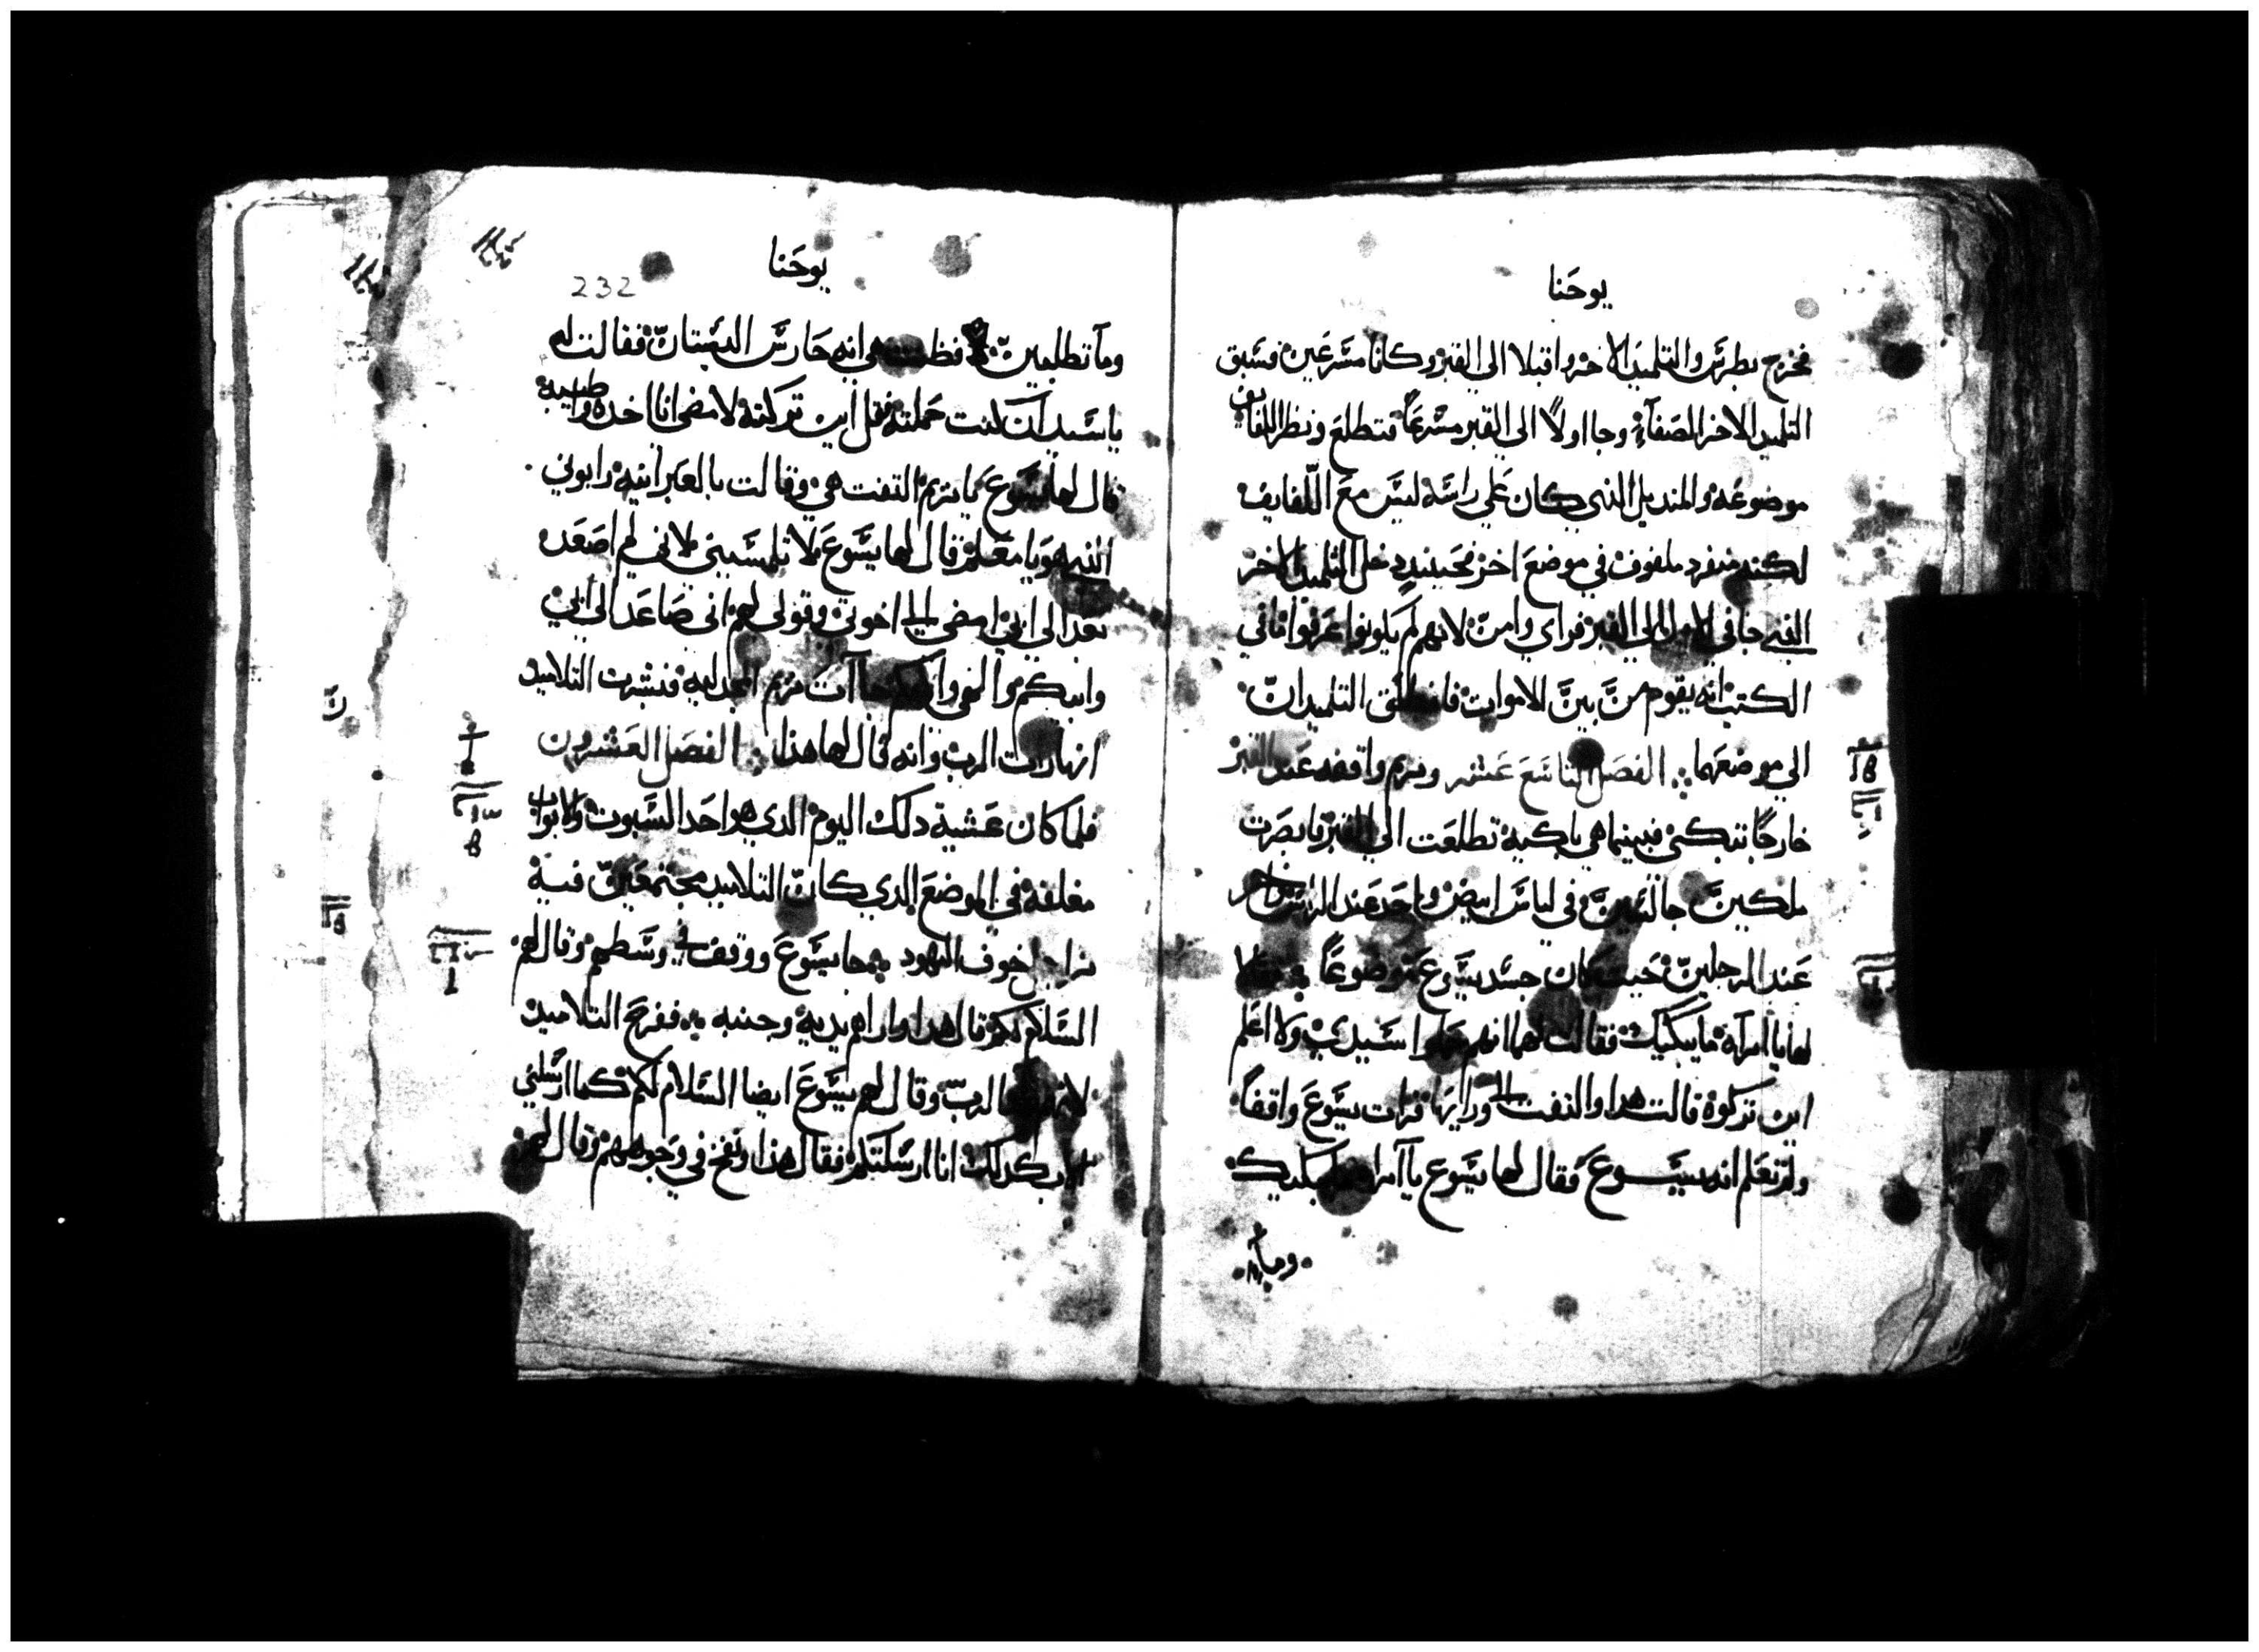 يوحنا
فخرج بطرس والتلميد الاخر واقبلا الي القبر وكانا مسرعين فسبق
التلميد الاخر الصفاء وجا اولاً الي القبر مسرعاً فتطلع ونظر اللفايف
موضوعه والمنديل الذي كان علي راسه ليس مع اللفايف
لكنه منفرد ملفوف في موضع اخر فحينيد دخل التلميد الاخر
الذي جا في الاول الي القبر فراي وامن لانهم لم يكونوا عرفوا ما في
الكتب انه يقوم من بين الاموات فانطلق التلميدان
الي موضعهما الفصل التاسع عشر ومريم واقفه عند القبر
خارجًا تبكي فبينما هي باكيه تطلعت الي القبر فابصرت
ملكين جالسين في لباس ابيض واحد عند الراس واخر
عند الرجلين حيت كان جسد يسوع موضوعًا فقالا
لها يا امراه ما يبكيك فقالت لهما انهم حملوا سيدي ولا اعلم
اين تركوه قالت هدا والتفت الي ورايها فرات يسوع واقفاً
ولم تعلم انه يسوع فقال لها يسوع يا امراه ما يبكيك
وما
يوحنا
232
وما تطلبين فظنت هي انه حارس البستان فقالت له
يا سيد ان كنت حملته فقل اين تركته لامضي انا اخده واطيبه
قال لها يسوع يا مريم التفت هي وقالت بالعبرانيه رابوني
الذي هو يا معلم قال لها يسوع لا تلمسيني لاني لم اصعد
بعد الي ابي امضي الي اخوتي وقولي لهم اني صاعد الي ابي
وابيكم والهي والهكم جاات مريم المجدليه فبشرت التلاميد
انها رات الرب وانه قال لها هذا الفصل العشرون
فلما كان عشية دلك اليوم الدي هو احد السبوت والابواب
مغلقه في الموضع الدي كان التلاميد مجتمعين فيه
من اجل خوف اليهود جا يسوع ووقف في وسطهم وقال لهم
السلام لكم قال هدا واراهم يديه وجنبه ففرح التلاميد
الرب وقال لهم يسوع ايضا السلام لكم كما ارسلني
الاب كدلك انا ارسلتكم فقال هذا ونفخ في وجوههم وقال لهم